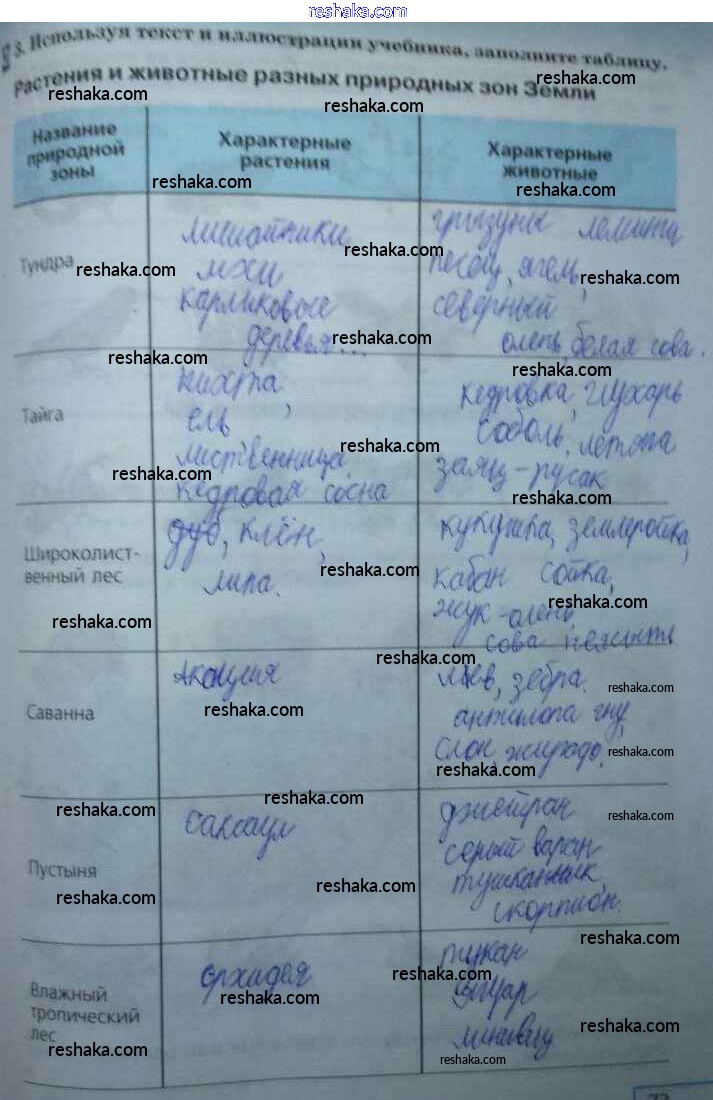 reshaka.com
3. Используя текст и иллюстрации учебника, заполните таблицу.
Растения и животные разных природных зон Земли
reshaka.com
reshaka.com
reshaka.com
Название природной зоны
Характерные растения
Характерные животные
reshaka.com
reshaka.com
Тундра
лишайники
мхи
карликовые
деревья...
грызуны лемминги
песец, ягель,
северный
олень, белая сова.
reshaka.com
reshaka.com
reshaka.com
reshaka.com
reshaka.com
reshaka.com
Тайга
пихта,
ель
лиственница
кедровая сосна
кедровка, глухарь
соболь, летяга
заяц-русак
reshaka.com
reshaka.com
reshaka.com
Широколист-
венный лес
дуб, клён,
липа.
кукушка, землеройка,
кабан сойка,
жук-олень,
сова неясыть
reshaka.com
reshaka.com
reshaka.com
reshaka.com
Саванна
Акация
лев, зебра.
антилопа гну,
слон, жирафо,
reshaka.com
reshaka.com
reshaka.com
reshaka.com
reshaka.com
reshaka.com
Пустыня
саксаул
джейран
серый варан
тушканчик,
скорпион.
reshaka.com
reshaka.com
reshaka.com
reshaka.com
Влажный
тропический
лес
орхидея
тукан
ягуар
reshaka.com
reshaka.com
reshaka.com
reshaka.com
reshaka.com